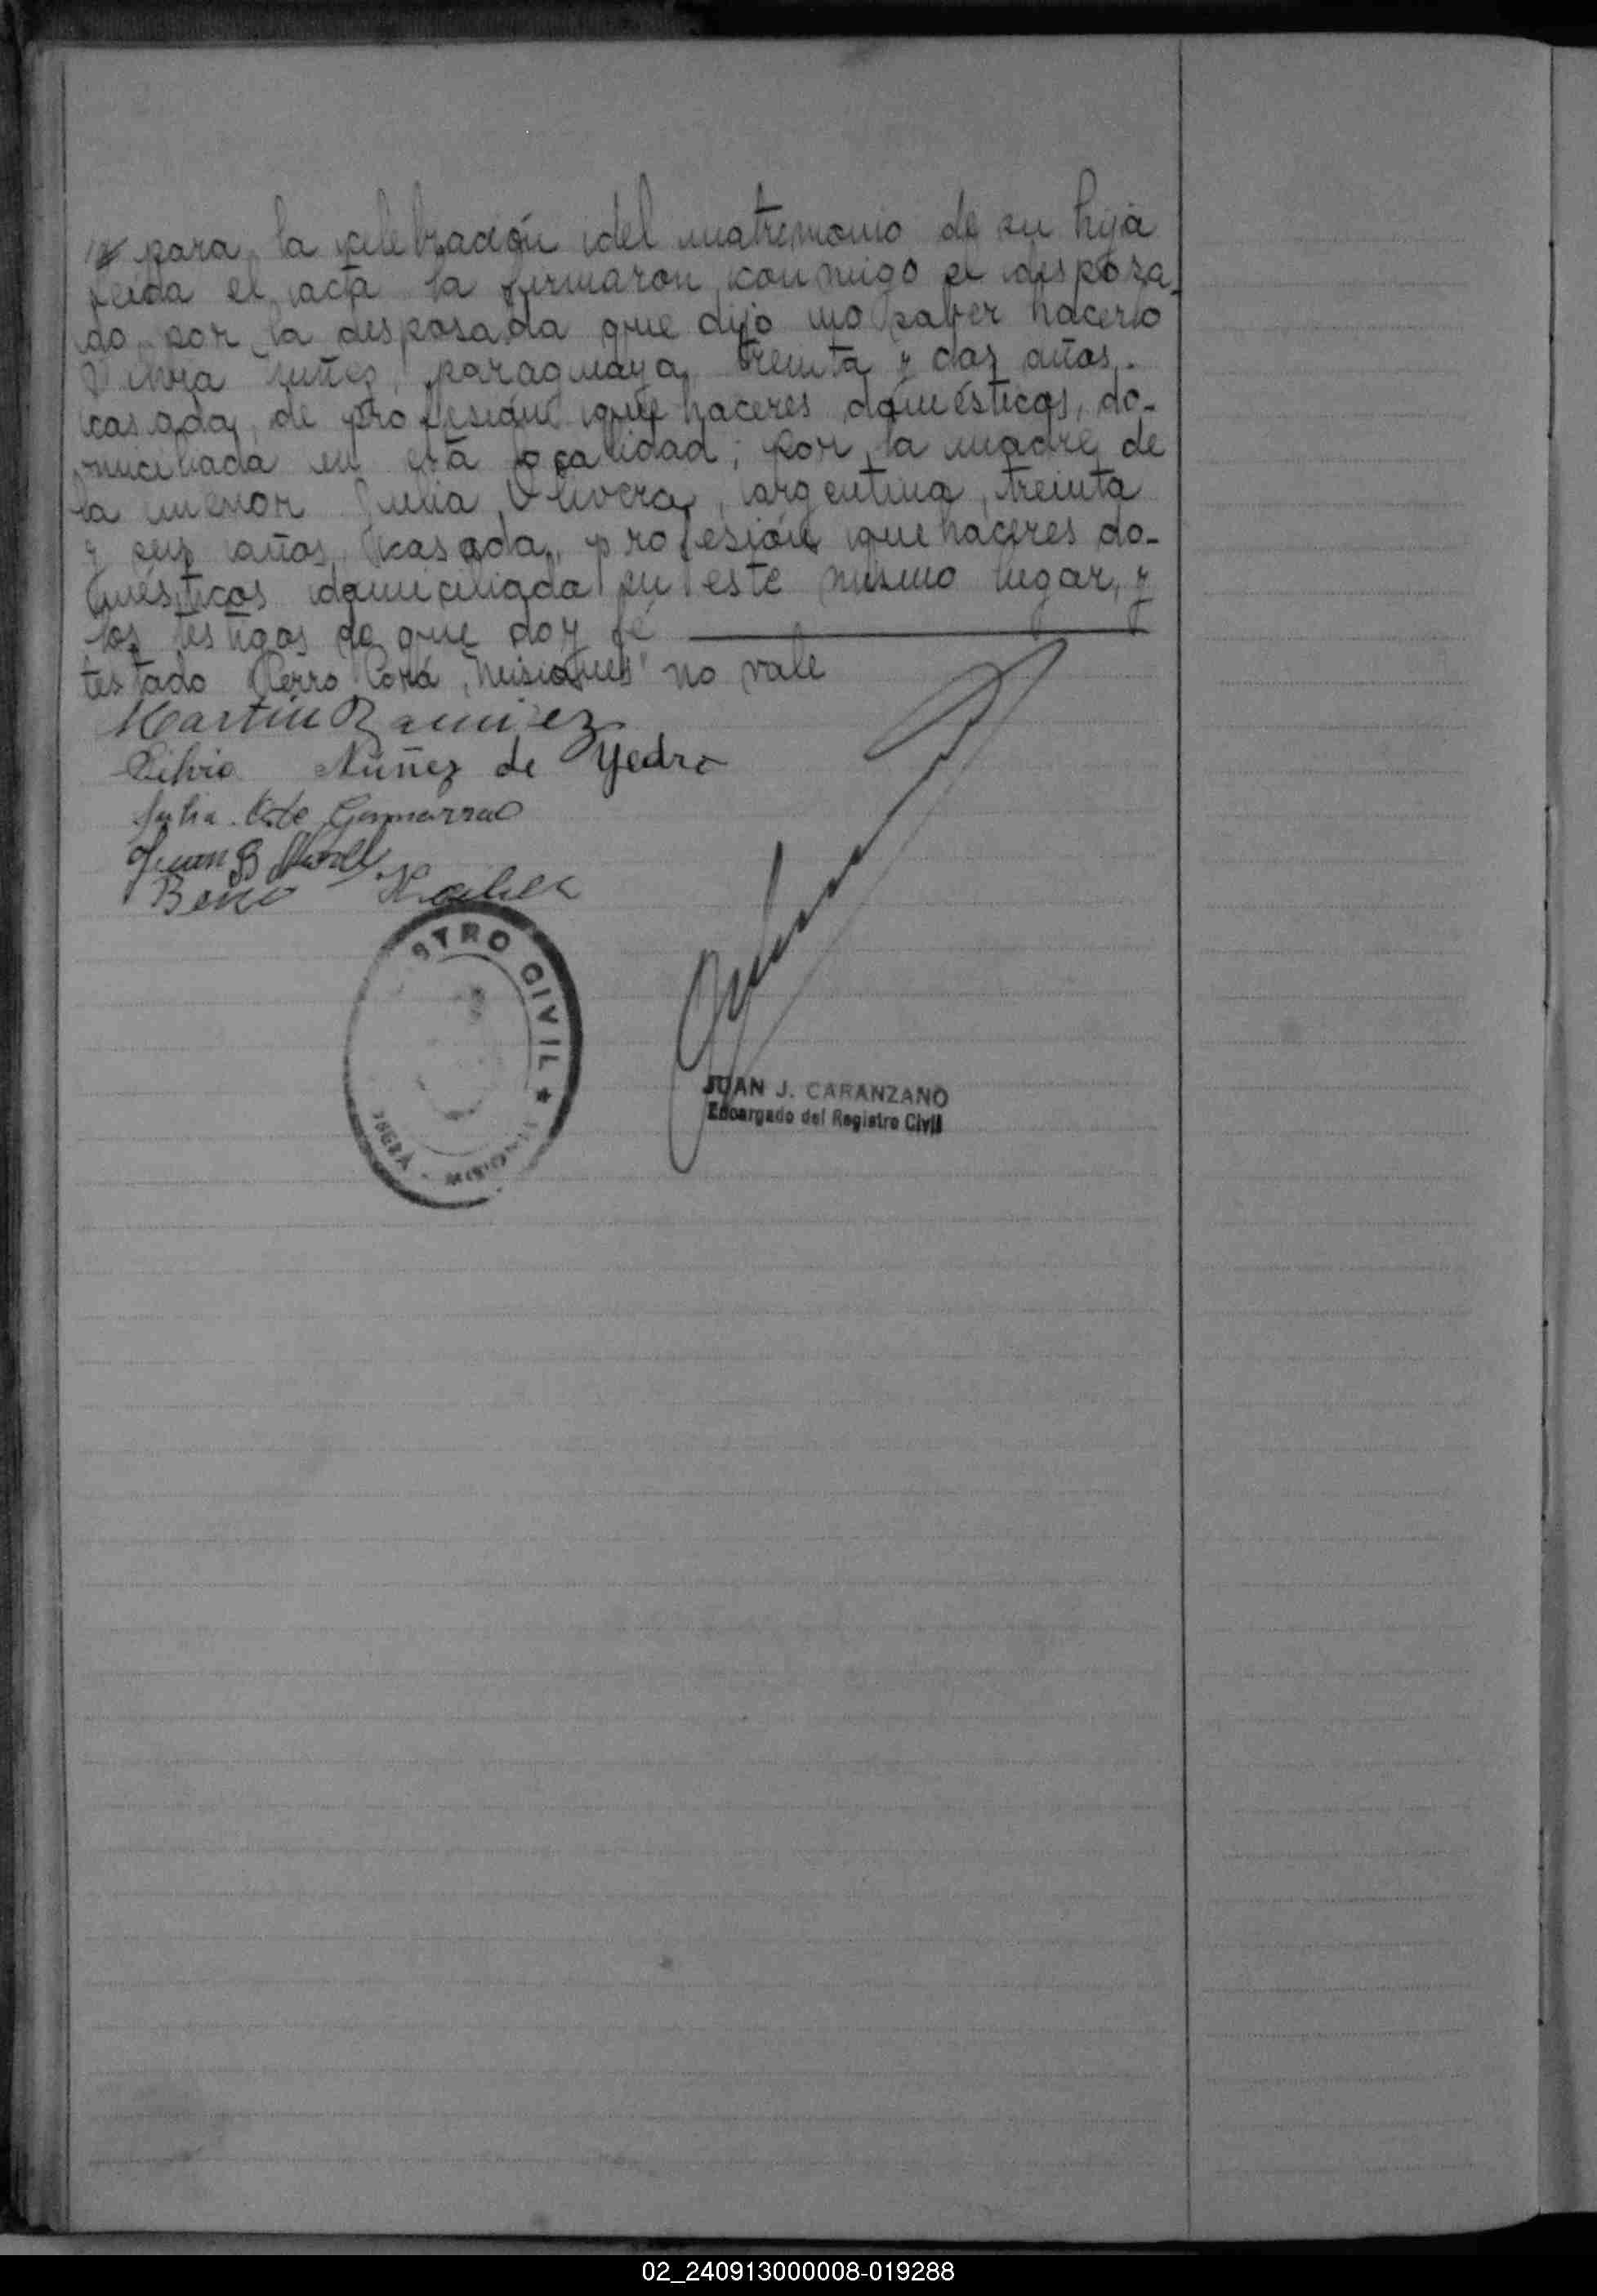 para la celebración del matrimonio de su hija
leida el acta la firmaron conmigo el desposa-
do por la desposada que dijo no saber hacerlo
Silvia Nuñez, paraguaya, treinta y dos años,
casada, de profesión quehaceres domésticos, do-
miciliada en esta localidad; por la madre de
la menor Julia Olivera, argentina, treinta
y seis años, casada, profesión quehaceres do-
mésticos domiciliada en este mismo lugar, y
los testigos de que doy fé
testado "Cerro Corá, Misiones" no vale
Martin Ramirez
Silvia Núñez de Yedro
Julia de Gamarra
Juan B
STRO CIVIL ★
MISIONES
JUAN J. CARANZANO
Encargado del Registro Civil
02_240913000008-019288